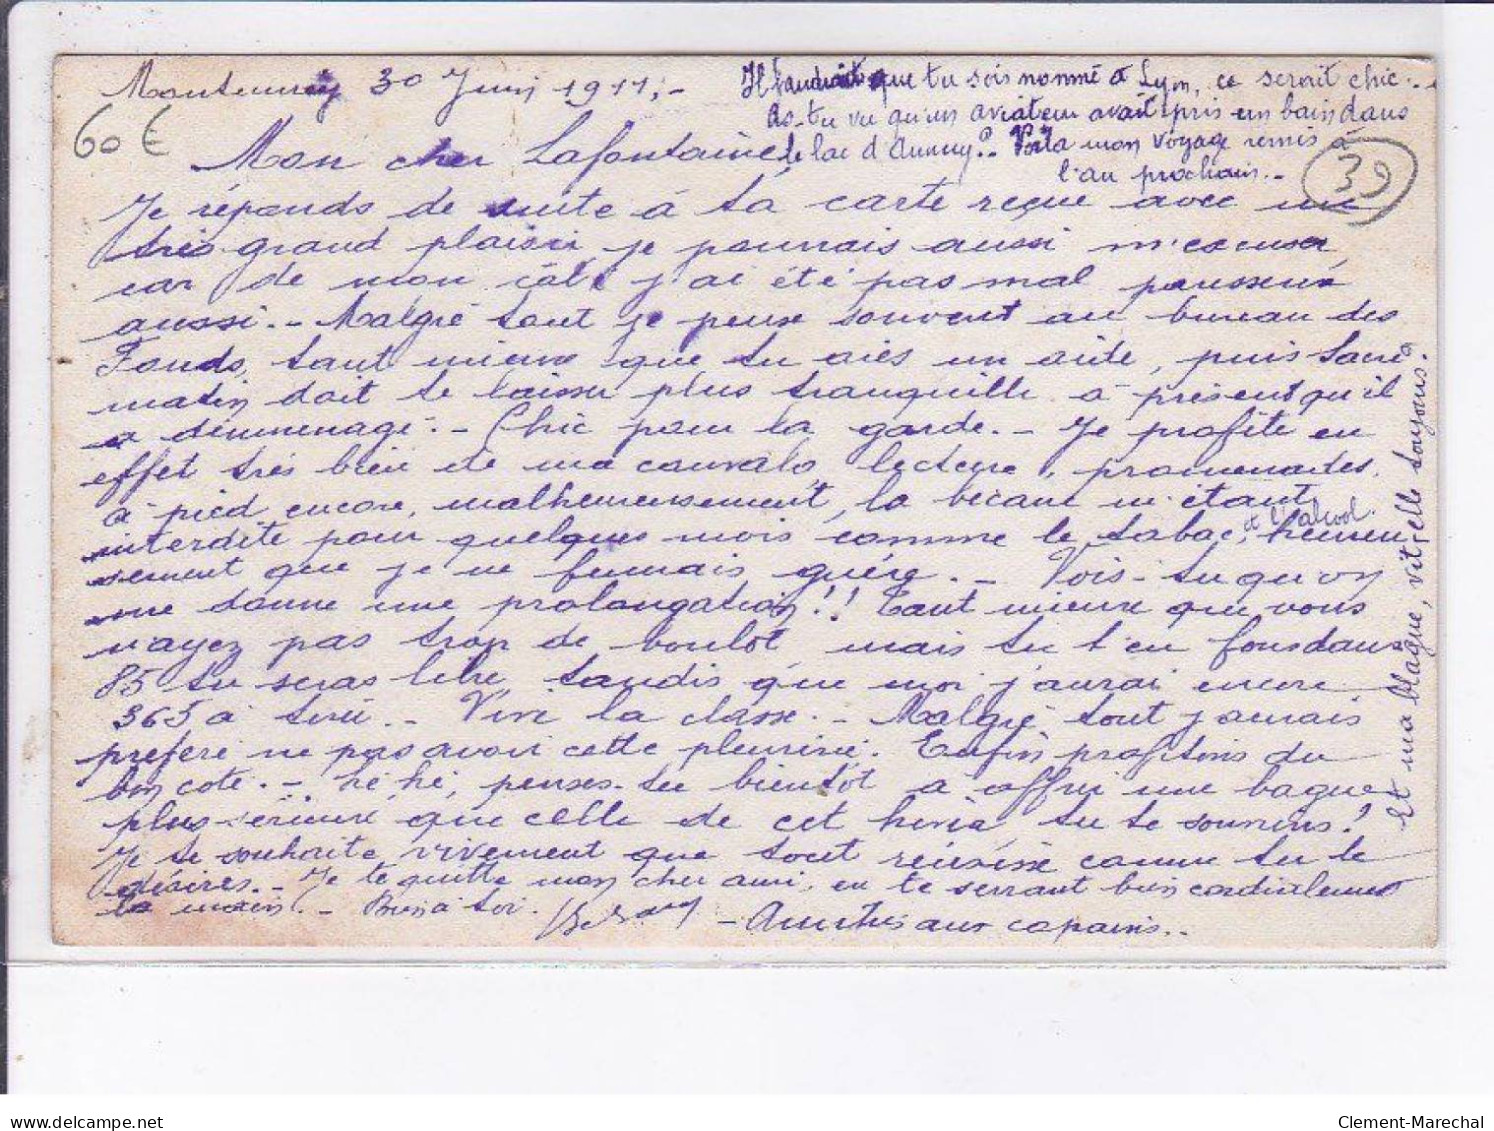 30 Juin 1911.-
Il faudrait que tu sois nommé à Lyon, ce serait chic.-
As-tu vu qu'un aviateur avait pris un bain dans
le lac d'Annecy?.. Voilà mon voyage remis à
l'an prochain.-
60 €
39
Mon cher Lafontaine,
Je réponds de suite à ta carte reçue avec un
très grand plaisir, je pourrais aussi m'excuser
car de mon côté j'ai été pas mal paresseux
aussi.- Malgré tout je pense souvent au bureau des
Fonds, tant mieux que tu aies un aide, puis
matin doit te laisser plus tranquille à présent qu'il
a démenagé.- Chic pour la garde.- Je profite en
effet très bien de ma convalo, lecture, promenades
à pied encore, malheureusement, la bécane m'étant
interdite pour quelques mois comme le tabac, et l'alcool. heureu
sement que je ne fumais guère.- Vois-tu qu'on
me donne une prolongation!! Tant mieux que vous
n'ayez pas trop de boulot, mais tu t'en fous dans
85 tu seras libre tandis que moi j'aurai encore
365 à tirer.- Vive la classe.- Malgré tout j'aurais
préféré ne pas avoir cette pleurésie. Enfin profitons du
bon coté.- hé hé, penses-tu bientôt à offrir une bague
plus sérieuse que celle de cet hiver, tu te souviens!
Je te souhaite vivement que tout réussisse comme tu le
désires.- Je te quitte mon cher ami, en te serrant bien cordialement
la main.- Bien à toi. - Amitiés aux copains..
Et ma blague, vit-elle toujours.
Clement-Marechal
delcampe.net